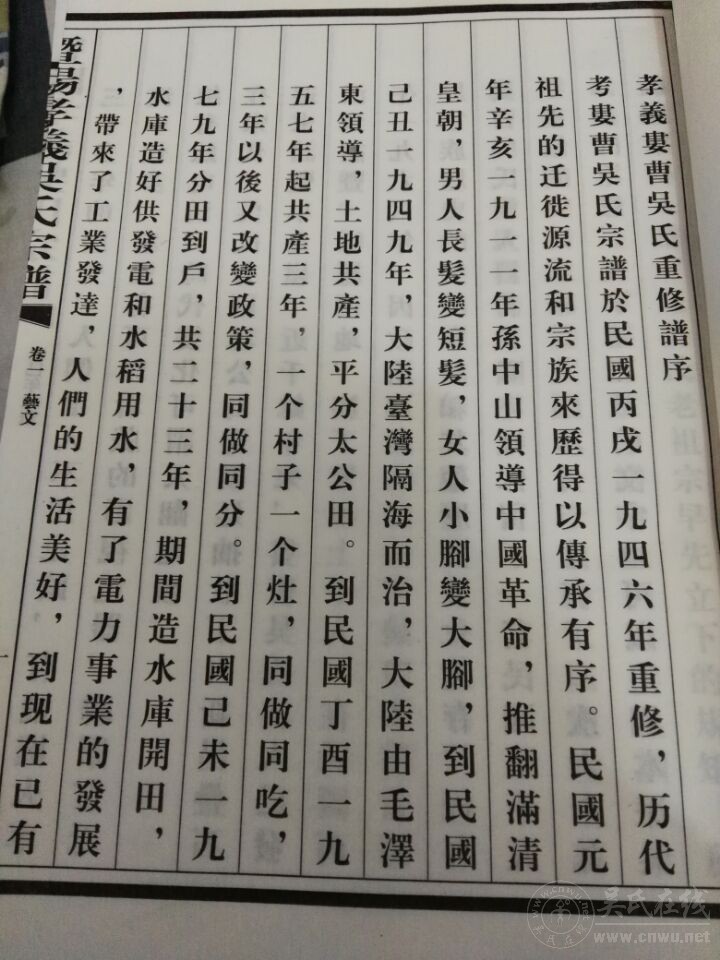 孝義婁曹吳氏重修譜序
考婁曹吳氏宗譜於民國丙戌一九四六年重修，历代
祖先的迁徙源流和宗族來歷得以傳承有序。民國元
年辛亥一九一一年孫中山領導中國革命，推翻滿清
皇朝，男人長髮變短髮，女人小腳變大腳，到民國
己丑一九四九年，大陸臺灣隔海而治，大陸由毛澤
東領導，土地共產，平分太公田。到民國丁酉一九
五七年起共產三年，一个村子一个灶，同做同吃，
三年以後又改變政策，同做同分。到民國己未一九
七九年分田到戶，共二十三年，期間造水庫開田，
水庫造好供發電和水稻用水，有了電力事業的發展
，帶來了工業發達，人們的生活美好，到现在已有
暨陽孝義吳氏宗譜
卷一 藝文
一
吳氏在线
www.cnwu.net